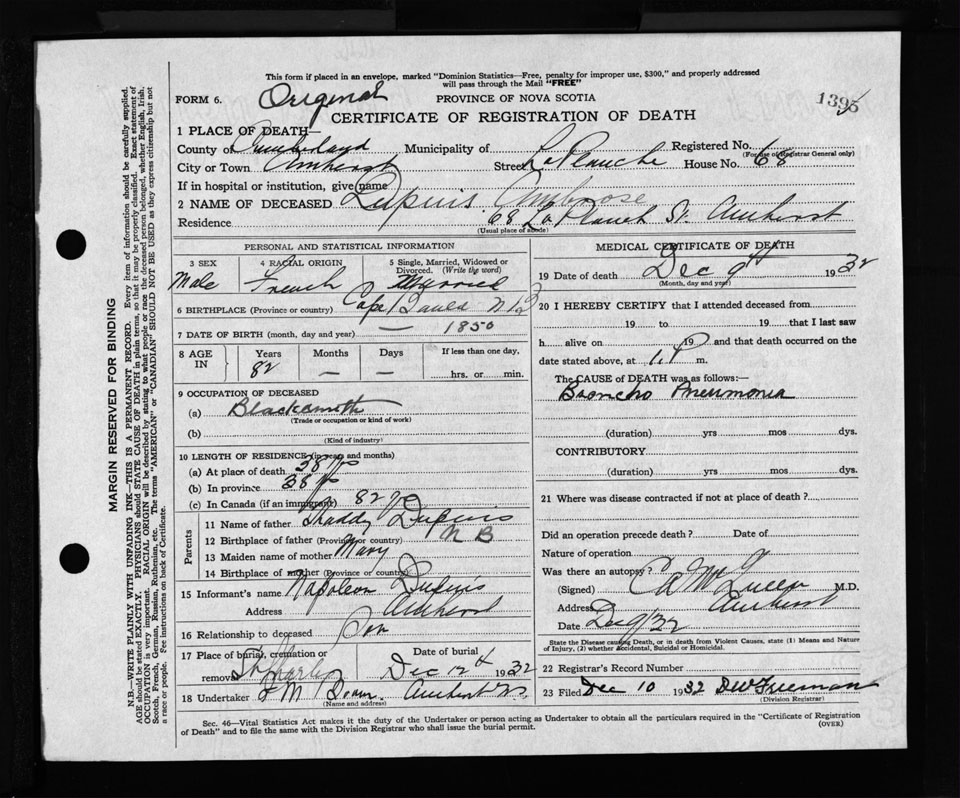 This form if placed in an envelope, marked "Dominion Statistics—Free, penalty for improper use, $300," and properly addressed
will pass through the Mail "FREE"
FORM 6. Original PROVINCE OF NOVA SCOTIA
CERTIFICATE OF REGISTRATION OF DEATH
1 PLACE OF DEATH—
County of Cumberland Municipality of Registered No.
(For use of Registrar General only)
City or Town Amherst Street La Planche House No. 68
If in hospital or institution, give name
2 NAME OF DECEASED Dupuis Ambrose
Residence 68 La Planch St. Amherst
(Usual place of abode)
PERSONAL AND STATISTICAL INFORMATION
3 SEX 4 RACIAL ORIGIN 5 Single, Married, Widowed or
Divorced. (Write the word)
Male French Married
6 BIRTHPLACE (Province or country) Cape N B
7 DATE OF BIRTH (month, day and year) — 1850
8 AGE IN Years Months Days If less than one day,
82 — — hrs. or min.
9 OCCUPATION OF DECEASED
(a) Blacksmith
(Trade or occupation or kind of work)
(b)
(Kind of industry)
10 LENGTH OF RESIDENCE (in years and months)
(a) At place of death 38 yrs
(b) In province 38 yrs
(c) In Canada (if an immigrant) 82 yrs
Parents
11 Name of father Thaddy Dupuis
12 Birthplace of father (Province or country) N B
13 Maiden name of mother Mary
14 Birthplace of mother (Province or country)
15 Informant's name Napoleon Dupuis
Address Amherst
16 Relationship to deceased Son
17 Place of burial, cremation or Date of burial
removal St Charles Dec 12th 1932
18 Undertaker Amherst NS
(Name and address)
MEDICAL CERTIFICATE OF DEATH
19 Date of death Dec 9th 1932
(Month, day and year)
20 I HEREBY CERTIFY that I attended deceased from
19 to 19 that I last saw
h alive on 19 and that death occurred on the
date stated above, at 1 P m.
The CAUSE OF DEATH was as follows:—
Broncho Pneumonia
(duration) yrs mos dys.
CONTRIBUTORY
(duration) yrs mos dys.
21 Where was disease contracted if not at place of death?
Did an operation precede death? Date of
Nature of operation
Was there an autopsy?
(Signed) M.D.
Address Amherst
Date Dec 9/32
State the Disease causing Death, or in death from Violent Causes, state (1) Means and Nature
of Injury, (2) whether Accidental, Suicidal or Homicidal.
22 Registrar's Record Number
23 Filed Dec 10 1932 Freeman
(Division Registrar)
Sec. 46—Vital Statistics Act makes it the duty of the Undertaker or person acting as Undertaker to obtain all the particulars required in the "Certificate of Registration
of Death" and to file the same with the Division Registrar who shall issue the burial permit.
(OVER)
MARGIN RESERVED FOR BINDING
N.B.—WRITE PLAINLY WITH UNFADING INK—THIS IS A PERMANENT RECORD. Every item of information should be carefully supplied.
AGE should be stated EXACTLY. PHYSICIANS should STATE CAUSE OF DEATH in plain terms, so that it may be properly classified. Exact statement of
OCCUPATION is very important. RACIAL ORIGIN will be described by stating to what people or race the deceased person belonged, whether English, Irish,
Scotch, French, German, Russian, Ruthenian, etc. The terms "AMERICAN" or "CANADIAN" SHOULD NOT BE USED as they express citizenship but not
a race or people. See instructions on back of Certificate.